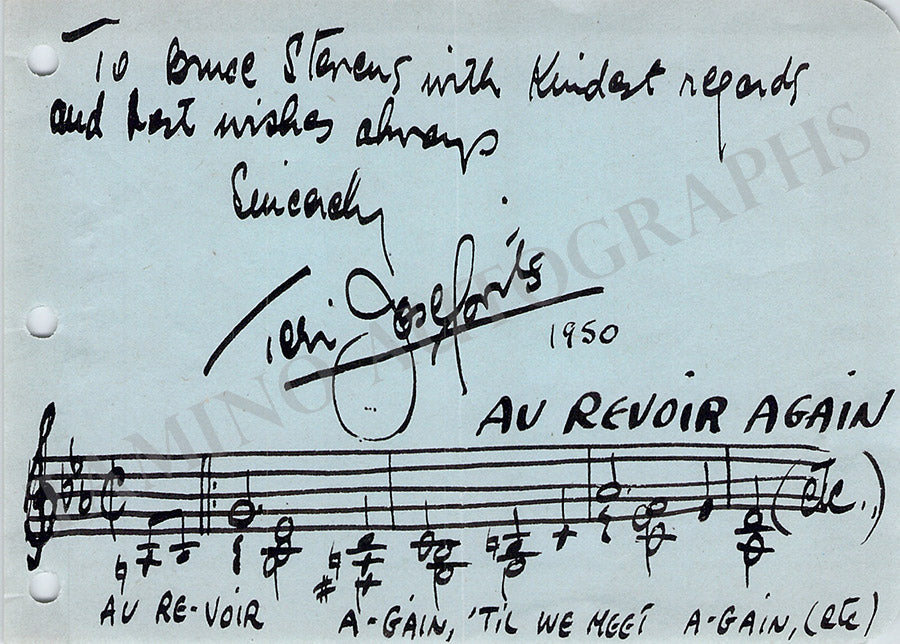 To Bruce Stevens with Kindest regards
and best wishes always
Sincerely
Teri Josefovits
1950
AU REVOIR AGAIN
(etc..)
AU RE-VOIR A-GAIN, 'TIL WE MEET A-GAIN, (etc)
TAMINO AUTOGRAPHS